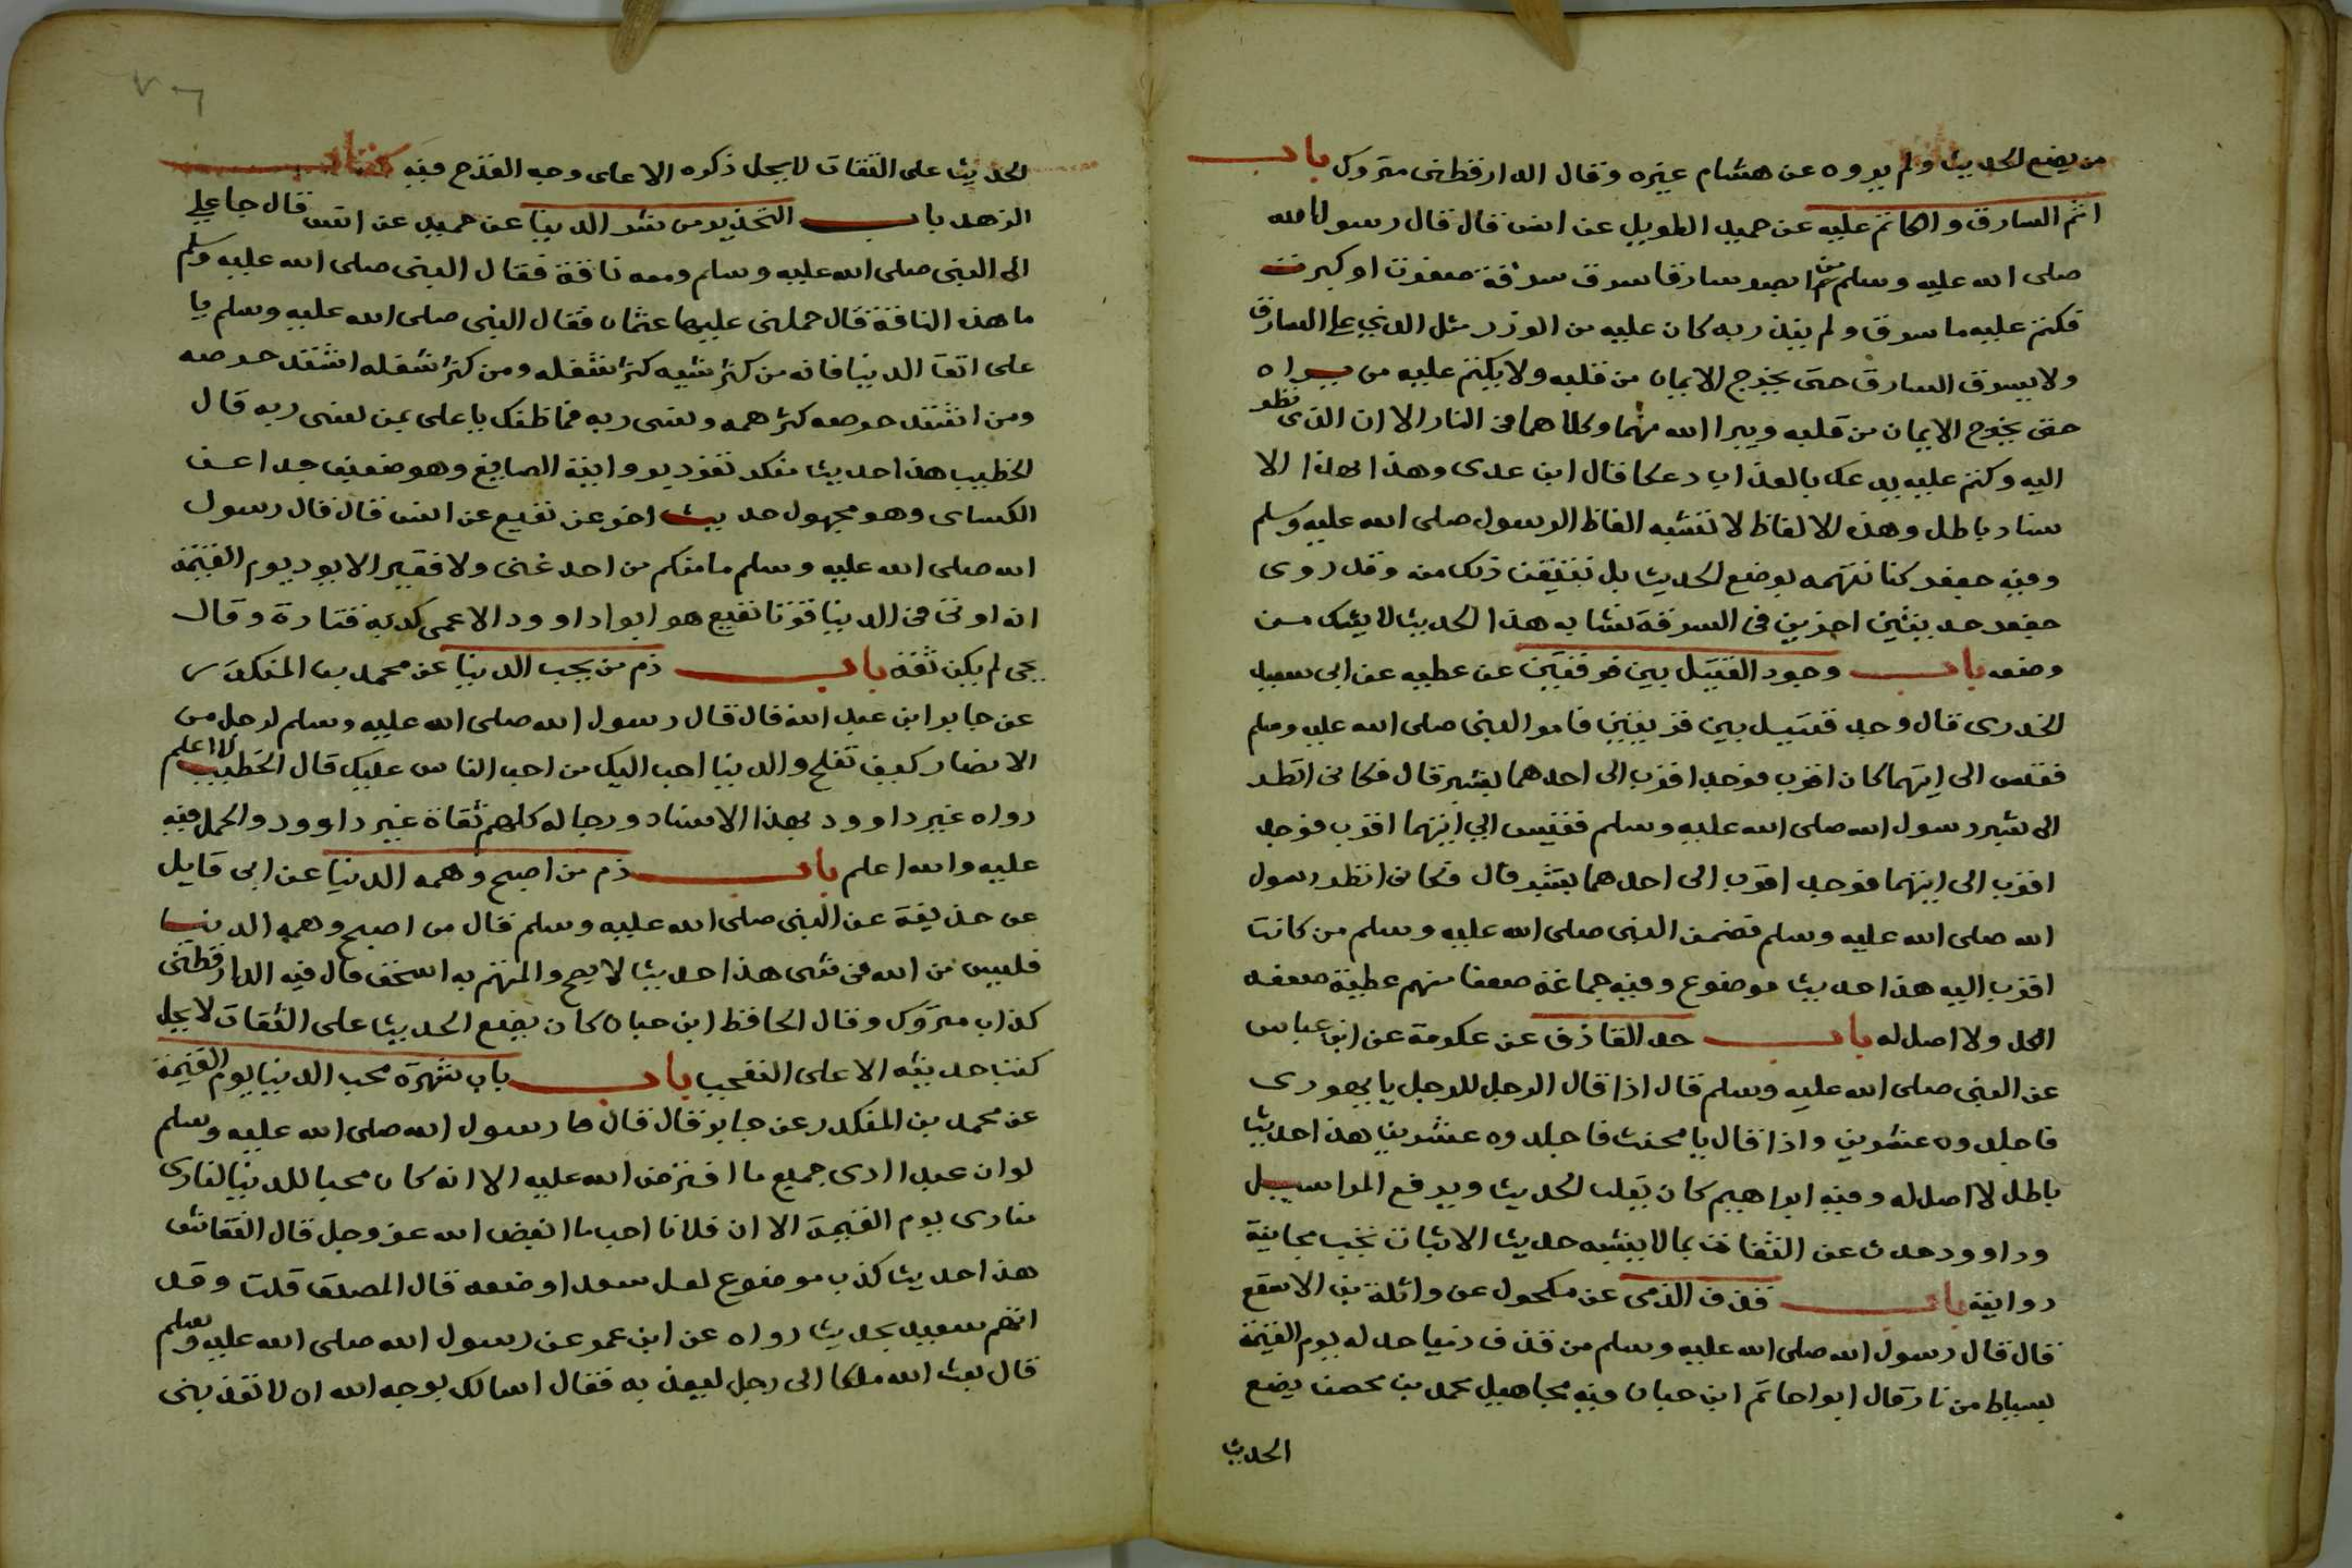 من يضع الحديث ولم يروه عن هشام غيره وقال الدارقطنى متروك باب
اثم السارق والكاتم عليه عن حميد الطويل عن انس قال قال رسول الله
صلى الله عليه وسلم من ابصر سارقا سرق سرقة صغرت او كبرت
فكتم عليه ما سرق ولم ينذر به كان عليه من الوزر مثل الذي على السارق
ولا يسرق السارق حتى يخرج الايمان من قلبه ولا يكتم عليه من يراه
حتى يخرج الايمان من قلبه ويبرا الله منهما وكلاهما فى النار الا ان الذى نظر
اليه وكتم عليه يدعك بالعذاب دعكا قال ابن عدى وهذا بهذا الا
سناد باطل وهذه الالفاظ لا تشبه الفاظ الرسول صلى الله عليه وسلم
وفيه جعفر كنا نتهمه بوضع الحديث بل نتيقن ذلك منه وقد روى
جعفر حديثين اخرين فى السرقة تشابه هذا الحديث لا يشك من
وضعه باب وجود القتيل بين فرقتين عن عطيه عن ابى سعيد
الخدرى قال وجد قتيل بين قريتين فامر النبى صلى الله عليه وسلم
فقيس الى ايتهما كان اقرب فوجد اقرب الى احدهما بشبر قال فكانى انظر
الى شبر رسول الله صلى الله عليه وسلم فقيس الي ايتهما اقرب فوجد
اقرب الى ايتهما فوجد اقرب الى احدهما بشبر قال فكانى انظر رسول
الله صلى الله عليه وسلم فضمن النبى صلى الله عليه وسلم من كانت
اقرب اليه هذا حديث موضوع وفيه جماعة ضعفا منهم عطية ضعفه
الكل ولا اصل له باب حد القاذف عن عكرمة عن ابن عباس
عن النبى صلى الله عليه وسلم قال اذا قال الرجل للرجل يا يهودى
فاجلدوه عشرين واذا قال يا مخنث فاجلدوه عشرين هذا حديث
باطل لا اصل له وفيه ابراهيم كان يقلب الحديث ويرفع المراسيل
وداوود حدث عن الثقات بما لا يشبه حديث الاثبات تجب مجانبة
روايته باب قذف الذمى عن مكحول عن واثلة بن الاسقع
قال قال رسول الله صلى الله عليه وسلم من قذف ذميا حد له يوم القيمة
بسياط من نار قال ابوا حاتم ابن حبان فيه مجاهيل محمد بن محصن يضع
الحديث
الحديث على الثقات لا يحل ذكره الا على وجه القدح فيه كتاب
الزهد باب التحذير من شر الدنيا عن حميد عن انس قال جا علي
الى النبى صلى الله عليه وسلم ومعه ناقة فقال النبى صلى الله عليه وسلم
ما هذه الناقة قال حملنى عليها عثمان فقال النبى صلى الله عليه وسلم يا
على اتق الدنيا فانه من كثر شيه كثر شغله ومن كثر شغله اشتد حرصه
ومن اشتد حرصه كثر همه ونسى ربه فما ظنك يا على بمن نسى ربه قال
الخطيب هذا حديث منكر تفرد يروايته الصايغ وهو ضعيف جدا عن
الكساى وهو مجهول حديث اخر عن نفيع عن انس قال قال رسول
الله صلى الله عليه وسلم ما منكم من احد غنى ولا فقير الا يود يوم القيمة
انه اوتى فى الدنيا قوتا نفيع هو ابوا داوود الاعمى كذبه قتادة وقال
يحى لم يكن ثقة باب ذم من يحب الدنيا عن محمد بن المنكدر
عن جابر ابن عبد الله قال قال رسول الله صلى الله عليه وسلم لرجل من
الانصار كيف تفلح والدنيا احب اليك من احب الناس عليك قال الخطيب لا اعلم
رواه غير داوود بهذا الاسناد ورجاله كلهم ثقاة غير داوود والحمل فيه
عليه والله اعلم باب ذم من اصبح وهمه الدنيا عن ابى قايل
عن حذيفة عن النبى صلى الله عليه وسلم قال من اصبح وهمه الدنيا
فليس من الله فى شى هذا حديث لا يصح والمتهم به اسحق قال فيه الدارقطنى
كذاب متروك وقال الحافظ ابن حبان كان يضع الحديث على الثقات لا يحل
كتب حديثه الا على التعجب باب باب شهرة محب الدنيا يوم القيمة
عن محمد بن المنكدر عن جابر قال قال ها رسول الله صلى الله عليه وسلم
لو ان عبدا ادى جميع ما افترض الله عليه الا انه كان محبا للدنيا لنادى
منادى يوم القيمة الا ان فلانا احب ما ابغض الله عز وجل قال النقاش
هذا حديث كذب موضوع لعل سعدا وضعه قال المصنف قلت وقد
اتهم سعيد بحديث رواه عن ابن عمر عن رسول الله صلى الله عليه وسلم
قال بعث الله ملكا الى رجل ليعذبه فقال اسالك بوجه الله ان لا تعذبنى